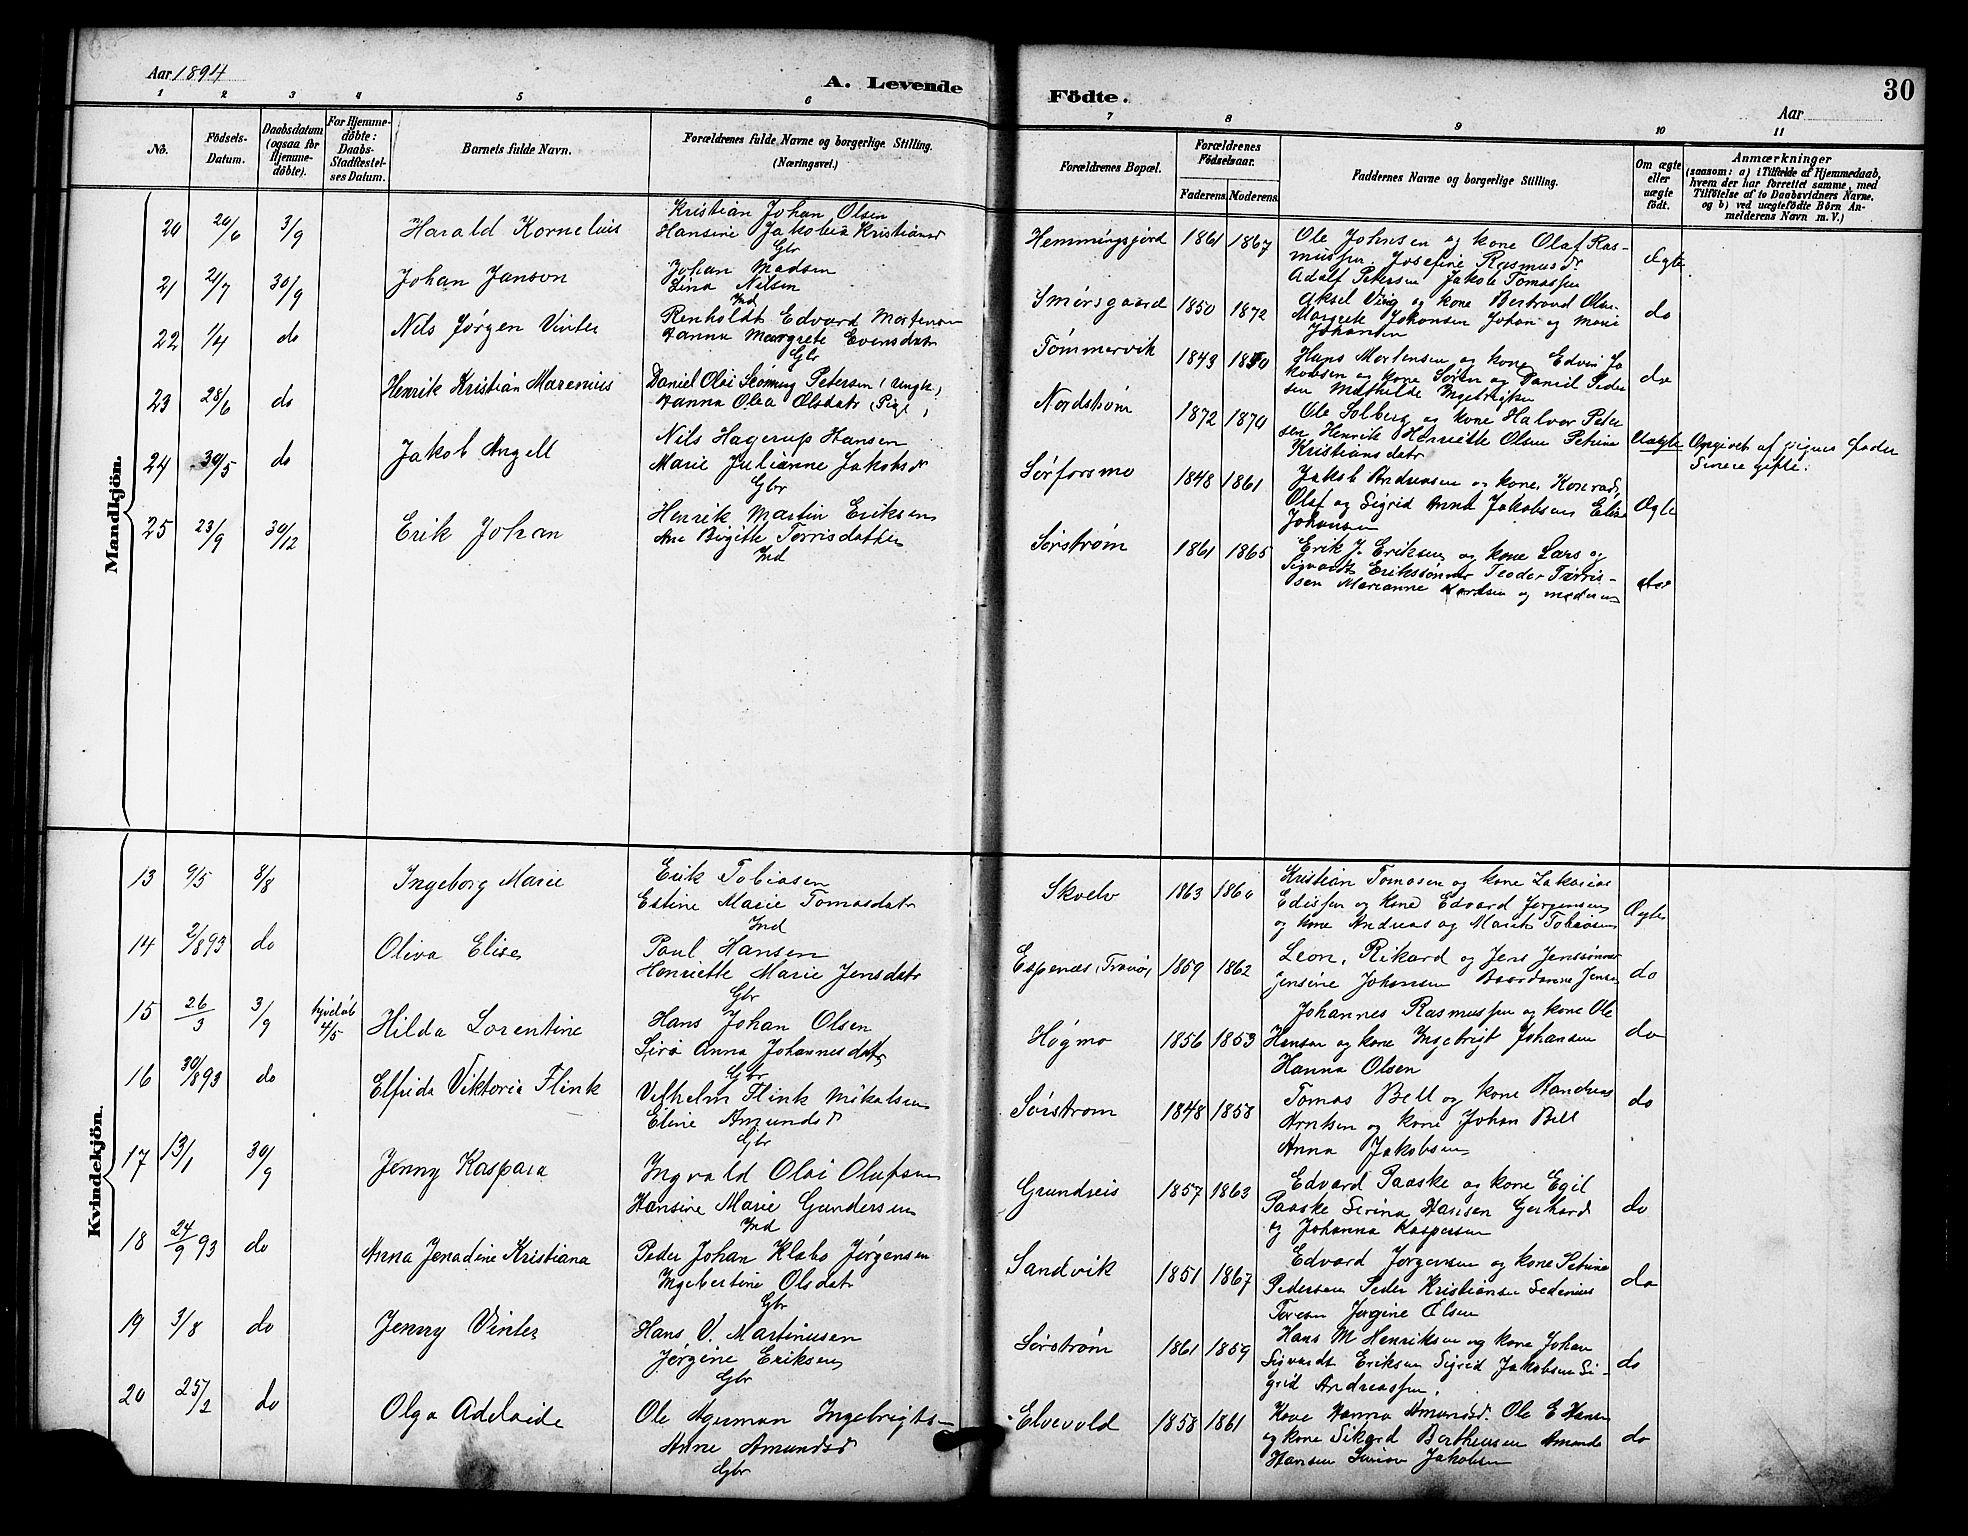 Aar 1894
A. Levende
Födte.
Aar
30
1 2 3 4 5 6 7 8 9 10 11
No.
Födsels-
Datum.
Daabsdatum
(ogsaa for
Hjemme-
döbte).
For Hjemme-
döbte:
Daabs-
Stadfæstel-
ses Datum.
Barnets fulde Navn.
Forældrenes fulde Navne og borgerlige Stilling.
(Næringsvei.)
Forældrenes Bopæl.
Forældrenes
Födselsaar.
Faderens. Moderens.
Faddernes Navne og borgerlige Stilling.
Om ægte
eller
uægte
født.
Anmærkninger
(saasom: a) i Tilfælde af Hjemmedaab,
hvem der har forrettet samme, med
Tilföielse af to Daabsvidners Navne,
og b) ved uægtefödte Börn An-
melderens Navn m. V.)
Mandkjön.
20 20/6 3/9 Harald Kornelius
Kristian Johan Olsen
Hansine Jakobia Kristiansd
Gbr
Hemmingsjord 1861 1867
Ole Johnsen og kone Olaf Ras-
mussen Josefine Rasmusd
Adolf Petersen Jakob Tomassen
Ægte
21 21/7 30/9 Johan Janson
Johan Madsen
Lina Nilsen
Ind
Smörsgaard 1850 1872
Aksel Ving og kone Bertrand Olsn
Margrete Johansen Johan og Marie
Johansen
do
22 1/4 do Nils Jørgen Vinter
Renholdt Edvard Mortensen
Hanna Margrete Evensdatr
Gbr
Tömmervik 1843 1850
Hans Mortensen og kone Edvin Ja
kobsen og kone Søren og Daniel Peder
sen Mathilde Ingebrigtsn
do
23 28/6 do Henrik Kristian Marenius
Daniel Olai Skönning Petersen (Ungk)
Hanna Olea Olsdatr (Pige)
Nordstrøm 1872 1870
Ole Solberg og kone Halvor Peter
sen Henrik Henriette Olsen Petrine
Kristiansdatr
Uægte Opgivet af Pigens fader
Senere gifte.
24 30/5 do Jakob Angell
Nils Hagerup Hansen
Marie Julianne Jakobsdr
Gbr
Sørforsmo 1848 1861
Jakob Andreasen og kone, Konrad,
Olaf og Sigrid Anna Jakobsen Elise
Johansen
Ægte
25 23/9 30/12 Erik Johan
Henrik Martin Eriksen
Ane Birgitte Torrisdatter
Ind
Sørstrøm 1861 1865
Erik J. Eriksen og kone Lars og
Sigvardt Erikssönner Teoder Törris-
sen Marianne Lardsen og moderen
do
Kvindekjön.
13 9/5 8/8 Ingeborg Marie
Erik Tobiasen
Estine Marie Tomasdatr
Ind
Skvelv 1863 1860
Kristian Tomasen og kone Zakarias
Edissen og kone Edvard Jørgensen
og kone Andreas og Marit Tobiasen
Ægte
14 2/893 do Oliva Elise
Paul Hansen
Henriette Marie Jensdatr
Gbr
Espenæs, Tranø, 1859 1862
Leon, Rikard og Jens Jenssönner
Jensine Johansen Jensen
do
15 26/3 3/9 4/5 Hilda Lorentine
Hans Johan Olsen
Siri Anna Johannesdatr
Gbr
Høgmo 1856 1853
Johannes Rasmussen og kone Ole
Hansen og kone Ingebrigt Johansen
Hanna Olsen
do
16 30/893 do Elfrida Viktoria Flink
Vilhelm Flink Mikalsen
Eline Amundsd
Gbr
Sörstrøm 1848 1858
Tomas Bell og kone Andreas
Arntsen og kone Johan Bell
Anna Jakobsen
do
17 13/1 30/9 Jenny Kaspara
Ingvald Olai Olufsen
Hansine Marie Gundersen
Ind
Grundreis 1857 1863
Edvard Paaske og kone Egil
Paaske Serina Hansen Gerhard
og Johanna Kaspersen
do
18 24/9 93 do Anna Jenadine Kristiana
Peder Johan Klabo Jørgensen
Ingebertine Olsdatr
Gbr
Sandvik 1851 1867
Edvard Jorgensen og kone Petrine
Pedersen Peder Kristiansen Sedenius
Toresen Jorgine Olsen
do
19 3/8 do Jenny Vinter
Hans V. Martinusen
Jørgine Eriksen
Gbr
Sørstrøm 1861 1859
Hans M Henriksen og kone Johan
Sigvardt Eriksen Sigrid Jakobsen Si-
grid Andreassen.
do
20 25/2 do Olga Adelaide
Ole Agerman Ingebrigts-
Anne Amundsd
Gbr
Elvevold 1858 1861
Hanna Amundsd. Ole E Hansen
og kone Sikard Berthensen Amanda
Hansen Simon Jakobsen
do